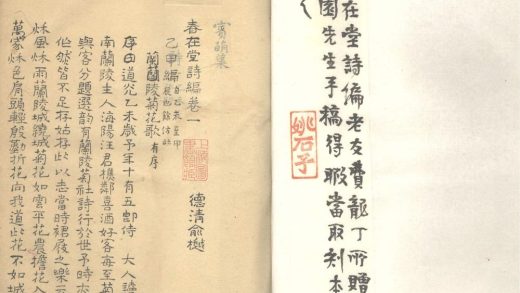 在堂詩編老友費龍丁所贈
園先生手稿得暇當取刻本
姚石子
春在堂詩編卷一
德清俞樾
乙甲編
蘭陵菊花歌 有序
序曰道光乙未歲予年十有五卽侍 大人讀
南蘭陵主人海陽汪君樵鄰喜酒好客每至菊
與客分題選韵有蘭陵菊社詩行於世予時亦
作然皆不足存姑存此以志當時裙屐之樂云
秌風秌雨蘭陵城繞城菊花如雲平花農擔花入
萬家秌色肩頭輕殷勤折花向我道此花不如城